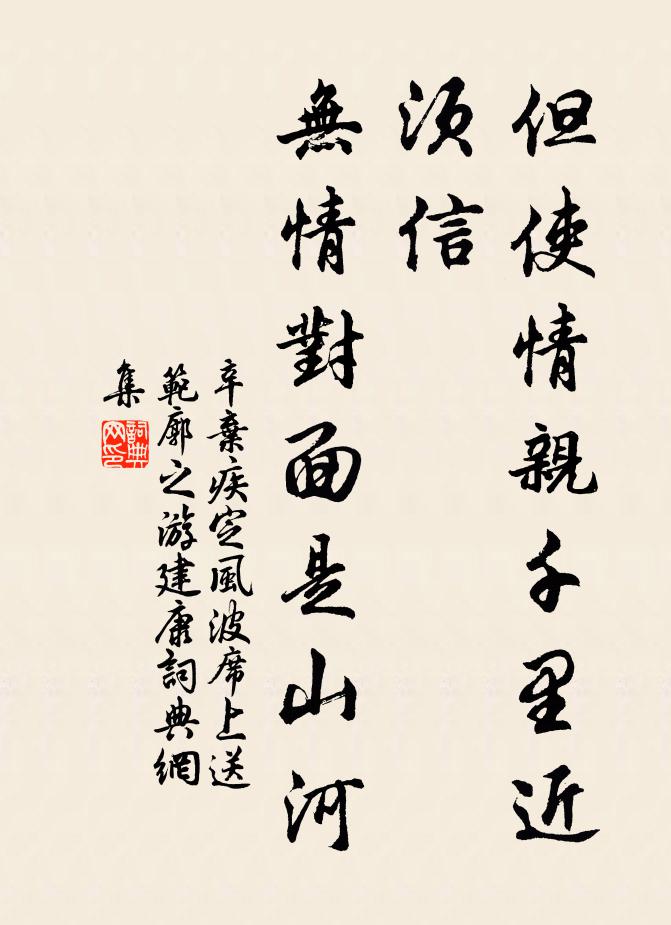 但使情親千里近
須信
無情對面是山河
辛棄疾定風波席上送
範廓之游建康詞典網
集
詞典
网印